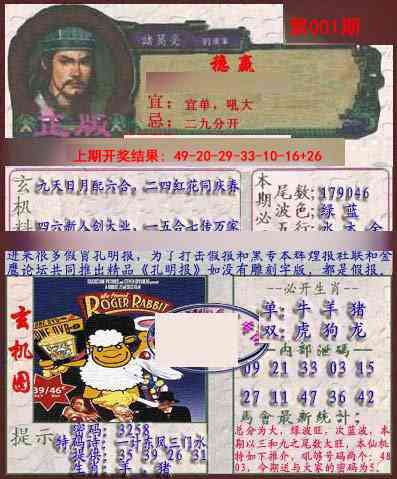 第001期
諸葛亮
稳赢
宜：宜单，吼大
忌：二九分开
正版
上期开奖结果: 49-20-29-33-10-16+26
玄机
九天日月配六合，二四红花同庆春
四六新人创大业，一五合七传万家
本期必
尾数:179046
波色:绿 蓝
近来很多假冒孔明报，为了打击假报和黑专本辉煌报社联和金
鹰论坛共同推出精品《孔明报》如没有雕刻字版，都是假报.
玄机图
ROGER RABBIT
39/46
--必开生肖--
单:牛羊猪
双:虎狗龙
--内部泄码--
09 21 33 03 15
27 11 47 36 42
馬會最新統計:
总分为大，绿波旺，次蓝波，本
期以三和九之尾数大旺，本仙机
特如下推介，吼够号码两个：48
03，今期送与大家的密码为5.
提示
密码: 3258
特码诗: 一计东风三门水
提供: 35 39 26 31
生肖: 羊.猪